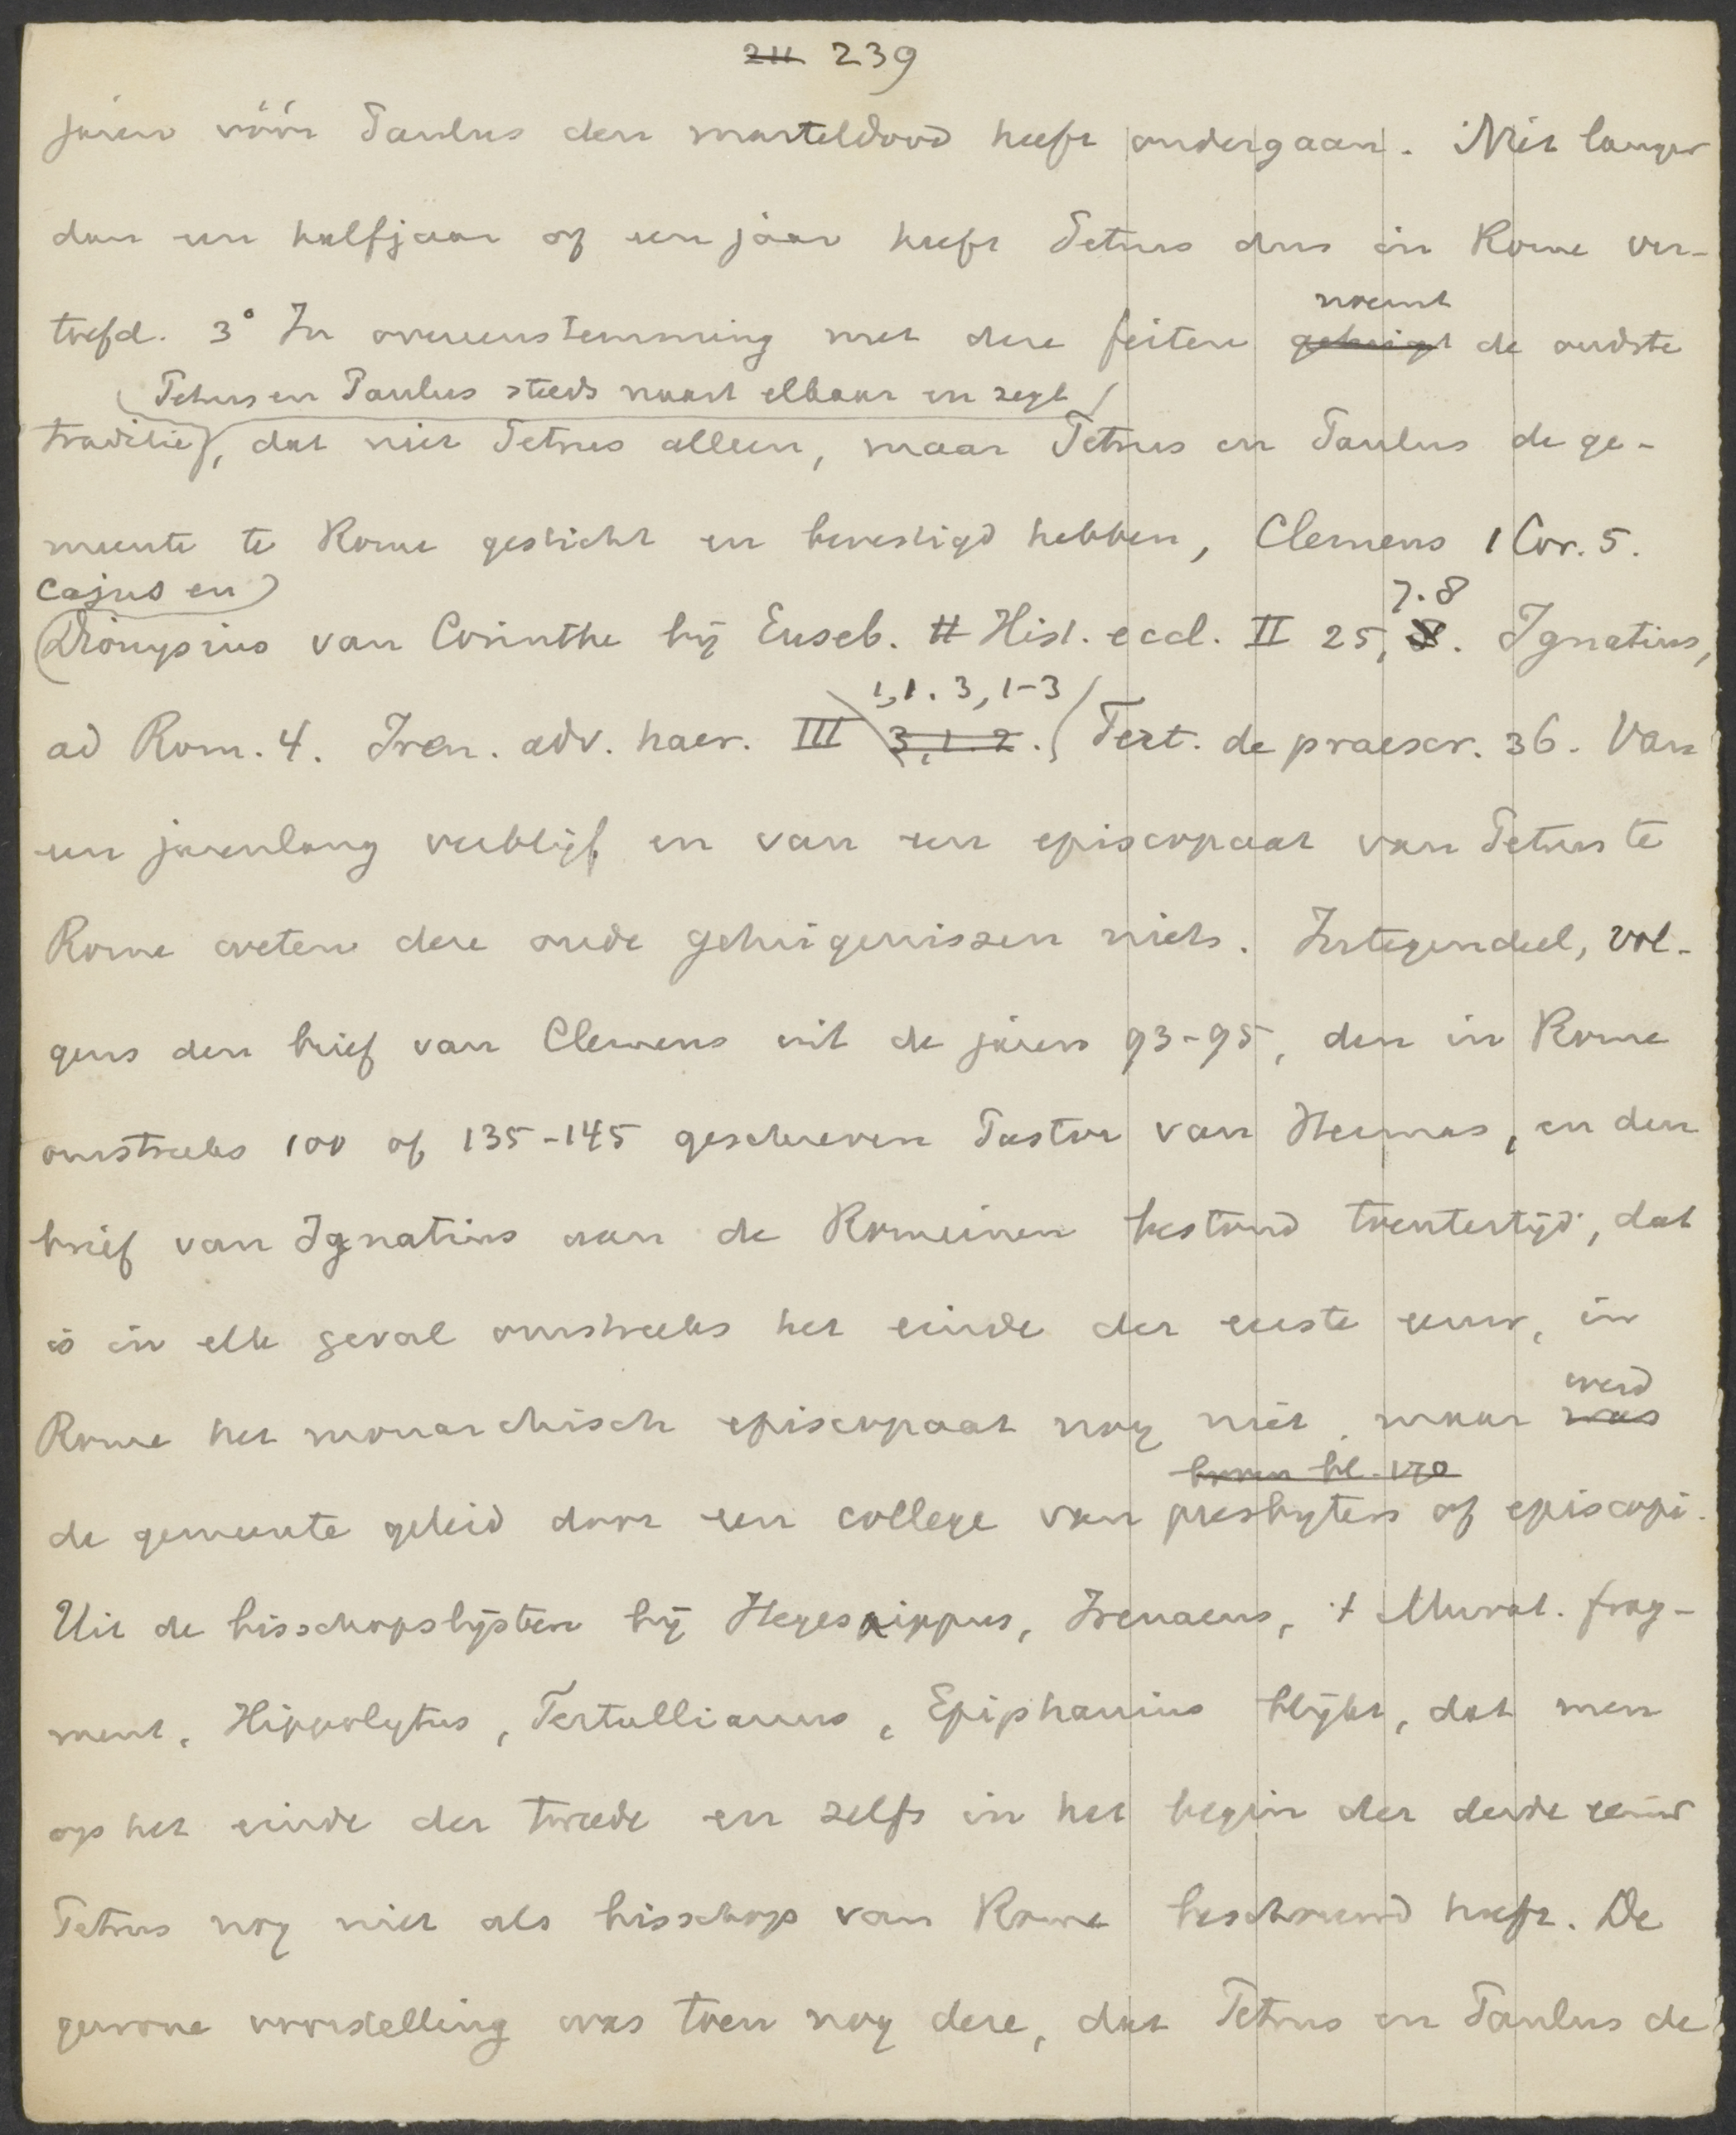 211 239
jaren vóór Paulus den marteldood heeft ondergaan. Niet langer
dan een halfjaar of een jaar heeft Petrus dus in Rome ver-
noemt
toefd. 3° In overeenstemming met deze feiten getuigt de oudste
Petrus en Paulus steeds naast elkaar en zegt
traditie, dat niet Petrus alleen, maar Petrus en Paulus de ge-
meente te Rome gesticht en bevestigd hebben, Clemens 1 Cor. 5.
Cajus en 7.8
Dionysius van Corinthe bij Euseb. H Hist. eccl. II 25, 8. Ignatius,
1,1. 3,1-3
ad Rom. 4. Iren. adv. haer. III 3,1.2. Tert. de praescr. 36. Van
een jarenlang verblijf en van een episcopaat van Petrus te
Rome weten deze oude getuigenissen niets. Integendeel, vol-
gens den brief van Clemens uit de jaren 93-95, den in Rome
omstreeks 100 of 135-145 geschreven Pastor van Hermas, en den
brief van Ignatius aan de Romeinen bestond toentertijd, dat
is in elk geval omstreeks het einde der eerste eeuw, in
werd
Rome het monarchisch episcopaat nog niet, maar was
boven bl. 170
de gemeente geleid door een college van presbyters of episcopi.
Uit de bisschopslijsten bij Hegesippus, Irenaeus, 't Murat. frag-
ment, Hippolytus, Tertullianus, Epiphanius blijkt, dat men
op het einde der tweede en zelfs in het begin der derde eeuw
Petrus nog niet als bisschop van Rome beschouwd heeft. De
gewone voorstelling was toen nog deze, dat Petrus en Paulus de